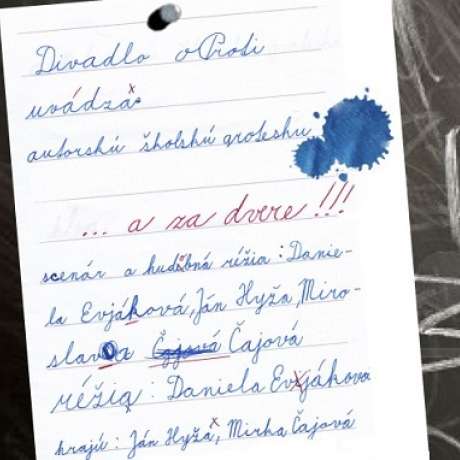 Divadlo oProti
uvádza
autorskú školskú grotesku
... a za dvere !!!
scenár a hudobná réžia : Danie-
la Evjáková, Ján Hyža, Miro-
slava Čajová
réžia : Daniela Evjákova
hrajú : Ján Hyža, Mirka Čajová